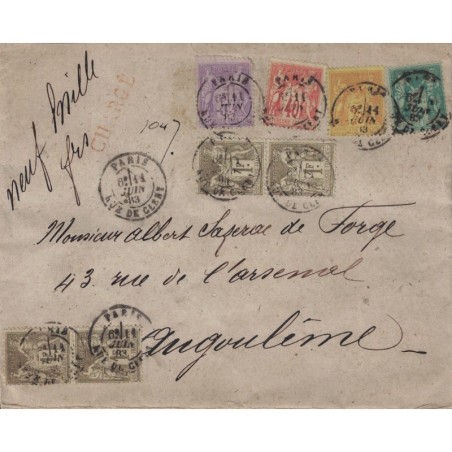 neuf Mille
frs
CHARGÉ
1047
PARIS
JUIN
83
R. DE CLERY
40
1F
1F
Monsieur Albert Laperae de Forge
43 rue de l'arsenal
Angoulême